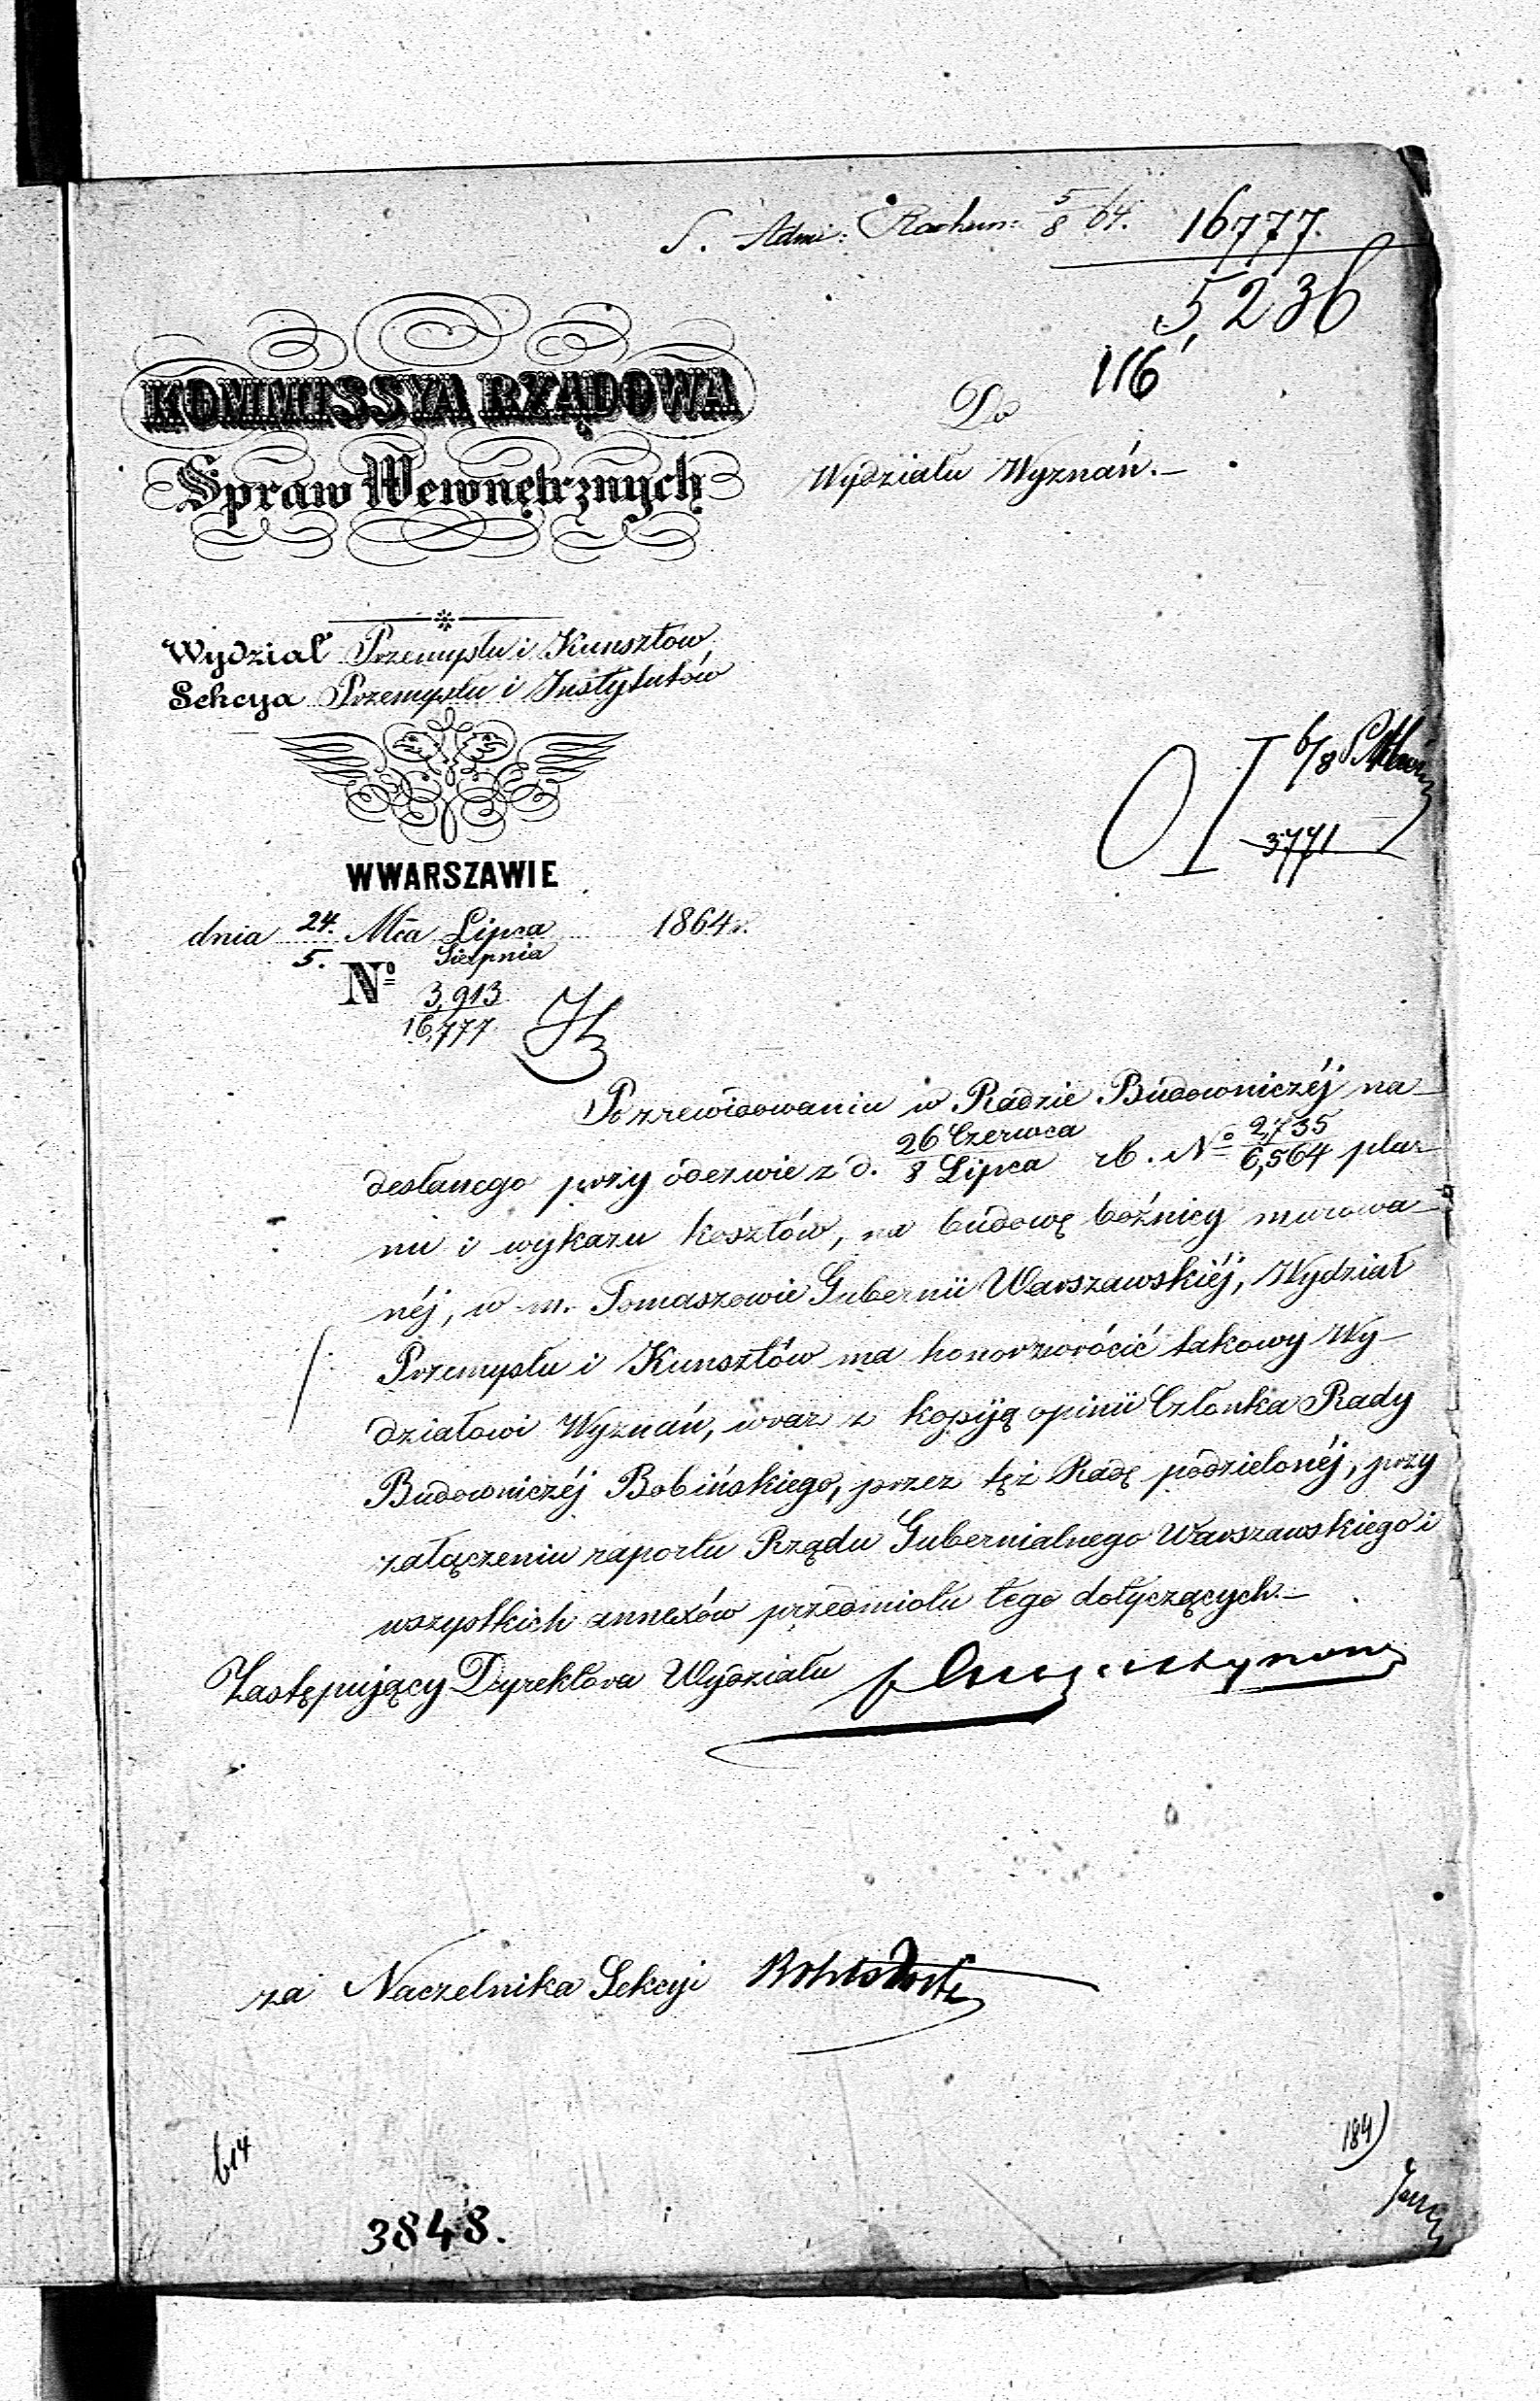 S. Admi: Rachun: 5/8 64. 16777.
5236
116
KOMMISSYA RZĄDOWA
Spraw Wewnętrznych
Do
Wydziału Wyznań.—
Wydział Przemysłu i Kunsztów
Sekcya Przemysłu i Instytutów
6/8
3771
W WARSZAWIE
dnia 24./5. Mca Lipca/Sierpnia 1864 r.
Nº 3,913/16,777
Po zrewidowaniu w Radzie Budowniczéj na-
desłanego przy odezwie z d. 26 Czerwca/8 Lipca rb. Nº 2,735/6,564 pla-
nu i wykazu kosztów, na budowę bóźnicy murowa-
néj, w m. Tomaszowie Gubernii Warszawskiéj, Wydział
Przemysłu i Kunsztów ma honor zwrócić takowy Wy-
działowi Wyznań, wraz z kopiją opinii Członka Rady
Budowniczéj Bobińskiego, przez tęż Radę podzielonéj, przy
załączeniu raportu Rządu Gubernialnego Warszawskiego i
wszystkich annexów przedmiotu tego dotyczących.—
Zastępujący Dyrektora Wydziału
za Naczelnika Sekcyi
614
184)
3848.